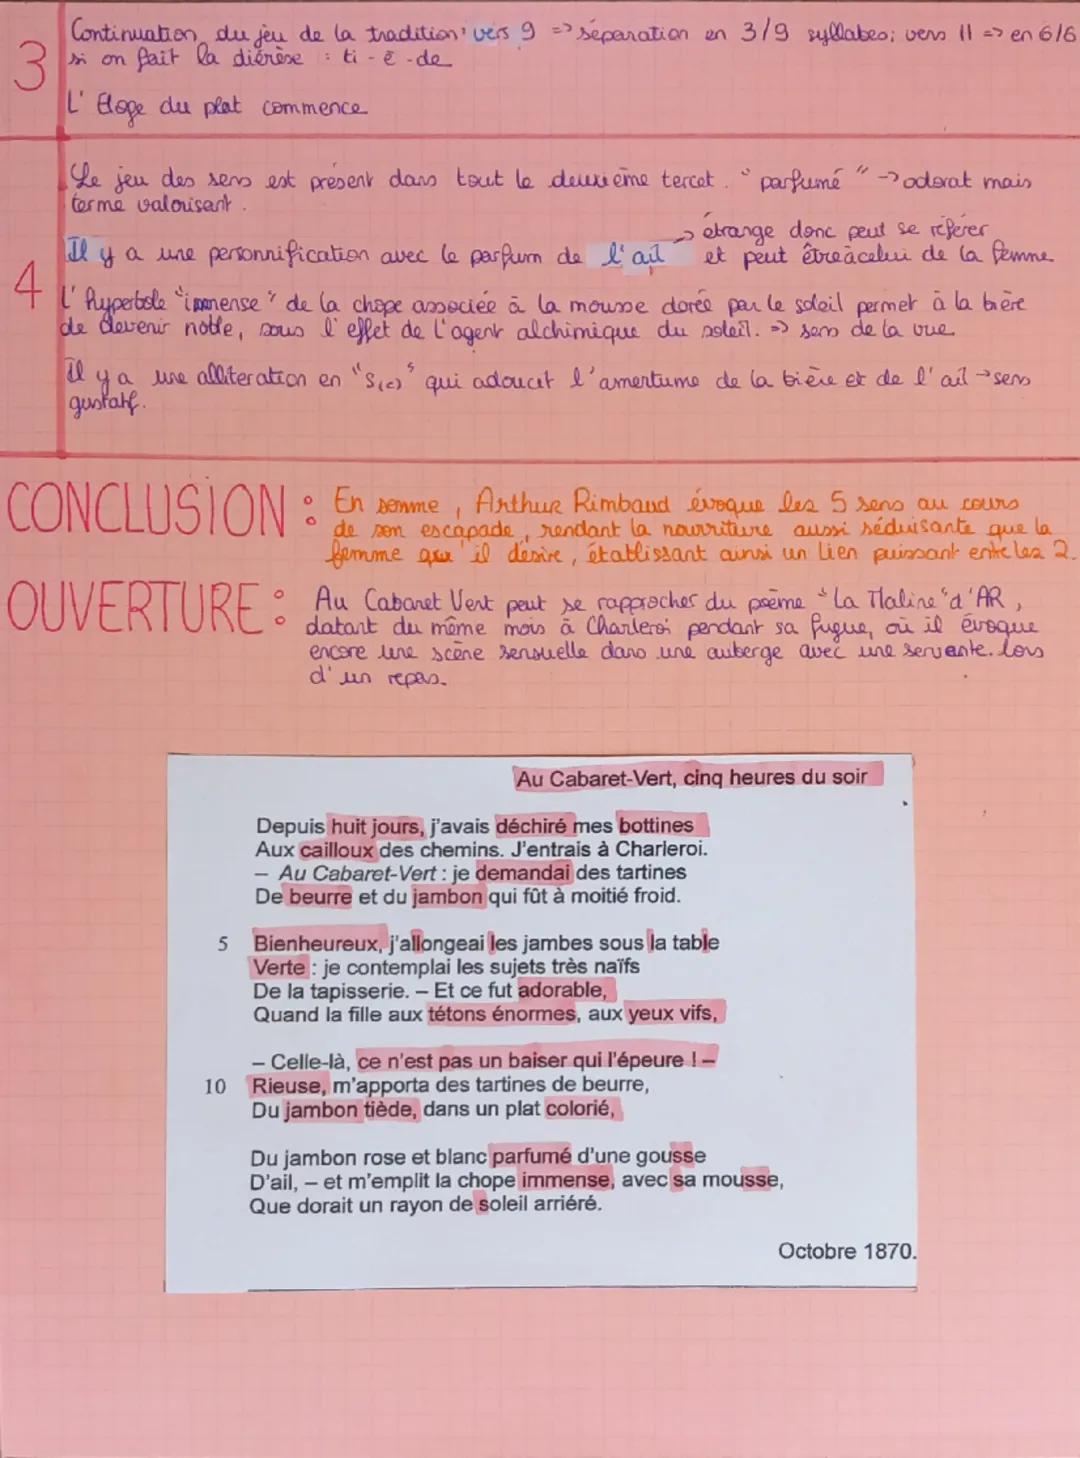 3
Continuation du jeu de la tradition: vers 9 => séparation en 3/9 syllabes; vers 11 => en 6/6
si on fait la diérèse : ti - è - de
L' Eloge du plat commence
4
Le jeu des sens est présent dans tout le deuxième tercet. "parfumé" -> odorat mais
terme valorisant.
Il y a une personnification avec le parfum de l'ail -> étrange donc peut se référer
et peut être à celui de la femme
L' hyperbole "immense" de la chope associée à la mousse dorée par le soleil permet à la bière
de devenir noble, sous l'effet de l'agent alchimique du soleil. => sens de la vue
Il y a une allitération en "S(c)" qui adoucit l'amertume de la bière et de l'ail -> sens
gustatif.
CONCLUSION : En somme, Arthur Rimbaud évoque les 5 sens au cours
de son escapade, rendant la nourriture aussi séduisante que la
femme qu'il désire, établissant ainsi un lien puissant entre les 2.
OUVERTURE : Au Cabaret Vert peut se rapprocher du poème "La Maline" d'AR,
datant du même mois à Charleroi pendant sa fugue, où il évoque
encore une scène sensuelle dans une auberge avec une servante. lors
d'un repas.
Au Cabaret-Vert, cinq heures du soir
Depuis huit jours, j'avais déchiré mes bottines
Aux cailloux des chemins. J'entrais à Charleroi.
– Au Cabaret-Vert : je demandai des tartines
De beurre et du jambon qui fût à moitié froid.
5 Bienheureux, j'allongeai les jambes sous la table
Verte : je contemplai les sujets très naïfs
De la tapisserie. – Et ce fut adorable,
Quand la fille aux tétons énormes, aux yeux vifs,
– Celle-là, ce n'est pas un baiser qui l'épeure ! –
10 Rieuse, m'apporta des tartines de beurre,
Du jambon tiède, dans un plat colorié,
Du jambon rose et blanc parfumé d'une gousse
D'ail, – et m'emplit la chope immense, avec sa mousse,
Que dorait un rayon de soleil arriéré.
Octobre 1870.